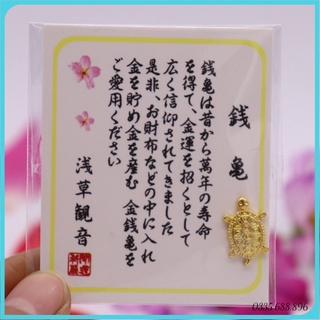 銭亀
銭亀は昔から萬年の寿命
を得て、金運を招くとして
広く信仰されてきました
是非、お財布などの中に入れ
金を貯め金を産む 金銭亀を
ご愛用ください
浅草観音
0335.688.896